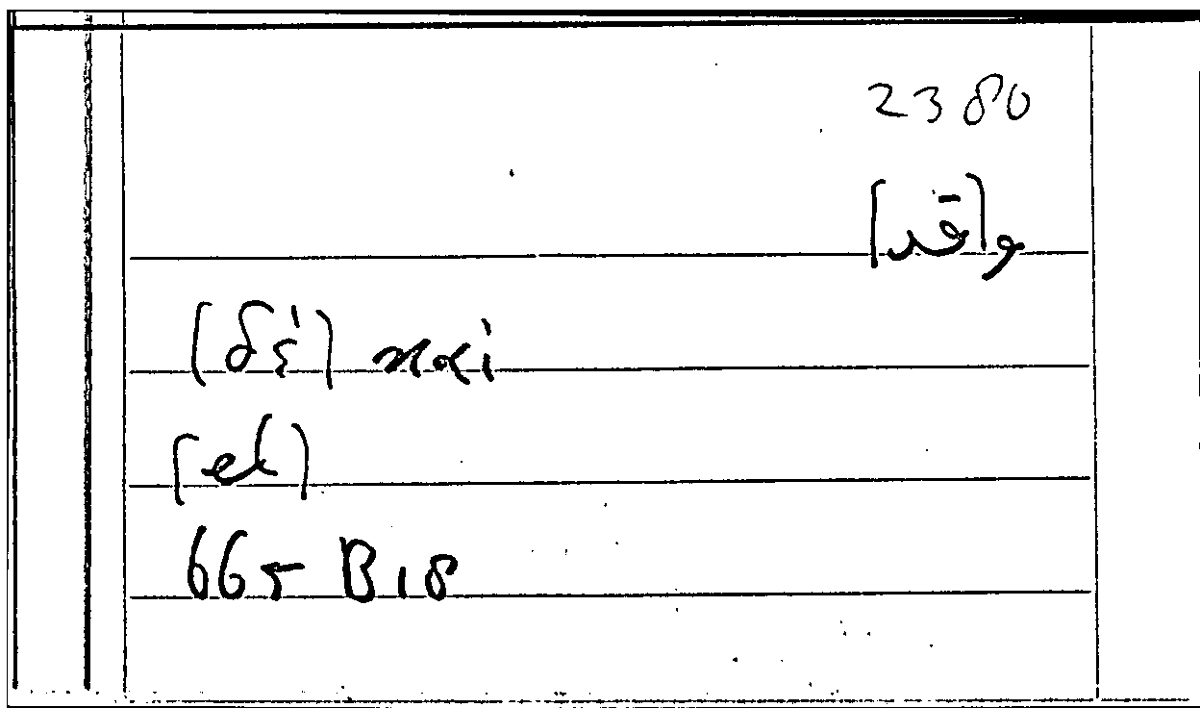 2380
و[قد]
[δέ] καί
[et]
665 B18